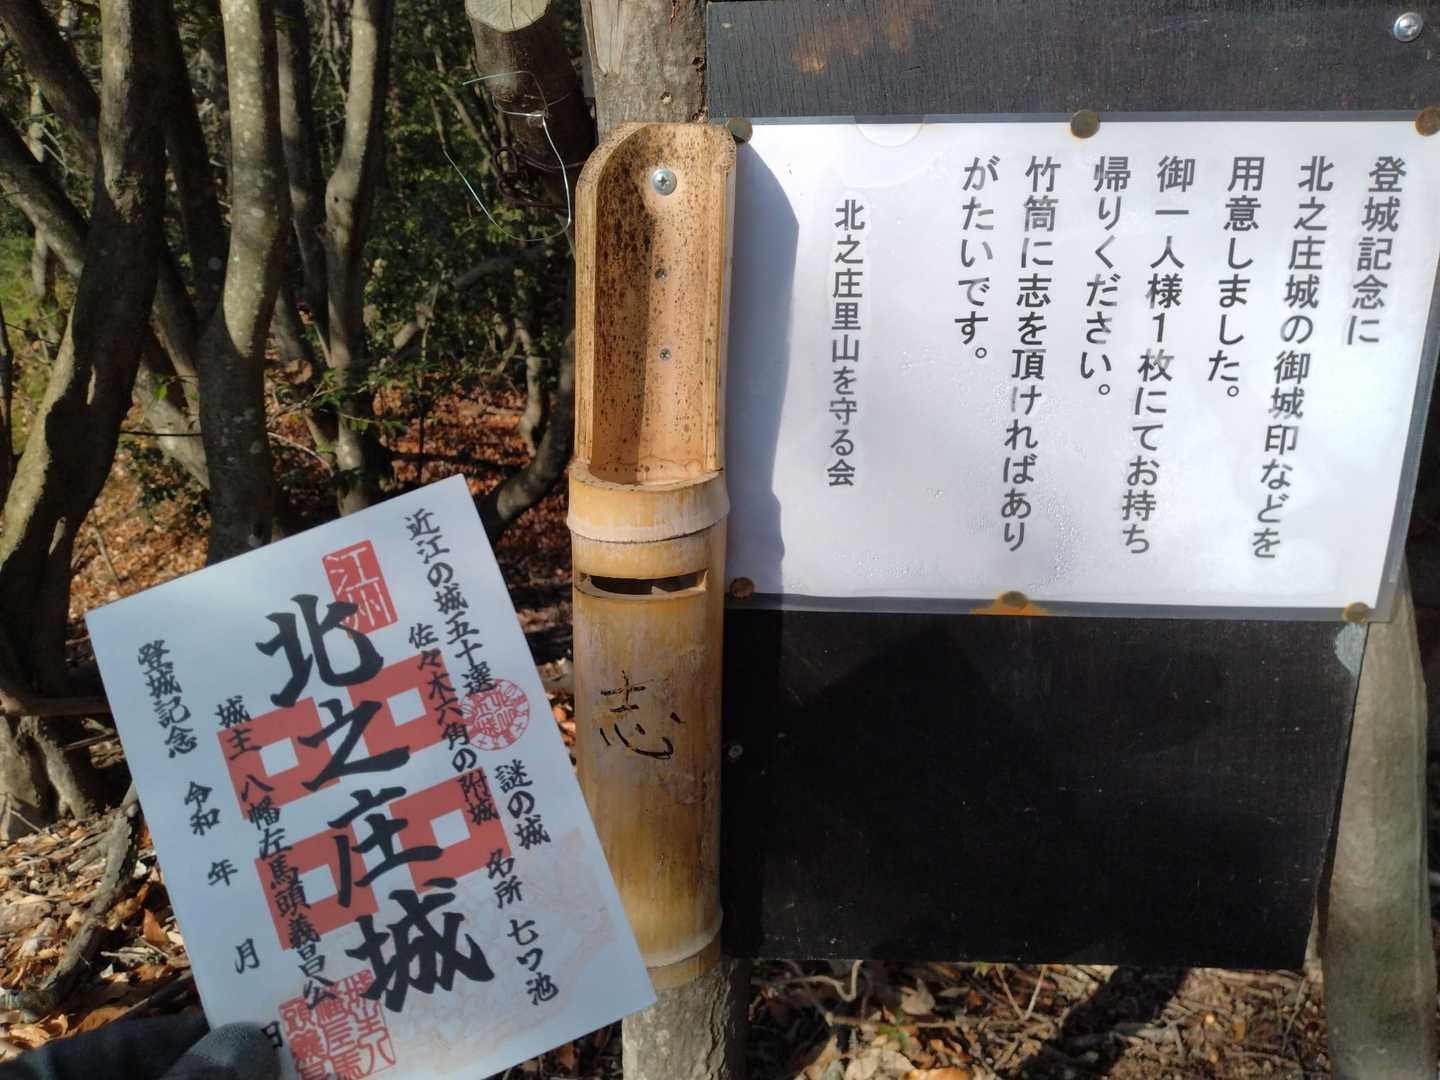 登城記念に
北之庄城の御城印などを
用意しました。
御一人様1枚にてお持ち
帰りください。
竹筒に志を頂ければあり
がたいです。
北之庄里山を守る会
志
謎の城 名所 七つ池
近江の城五十選
佐々木六角の附城
江州
北之庄城
城主 八幡左馬頭義昌公
登城記念 令和 年 月 日